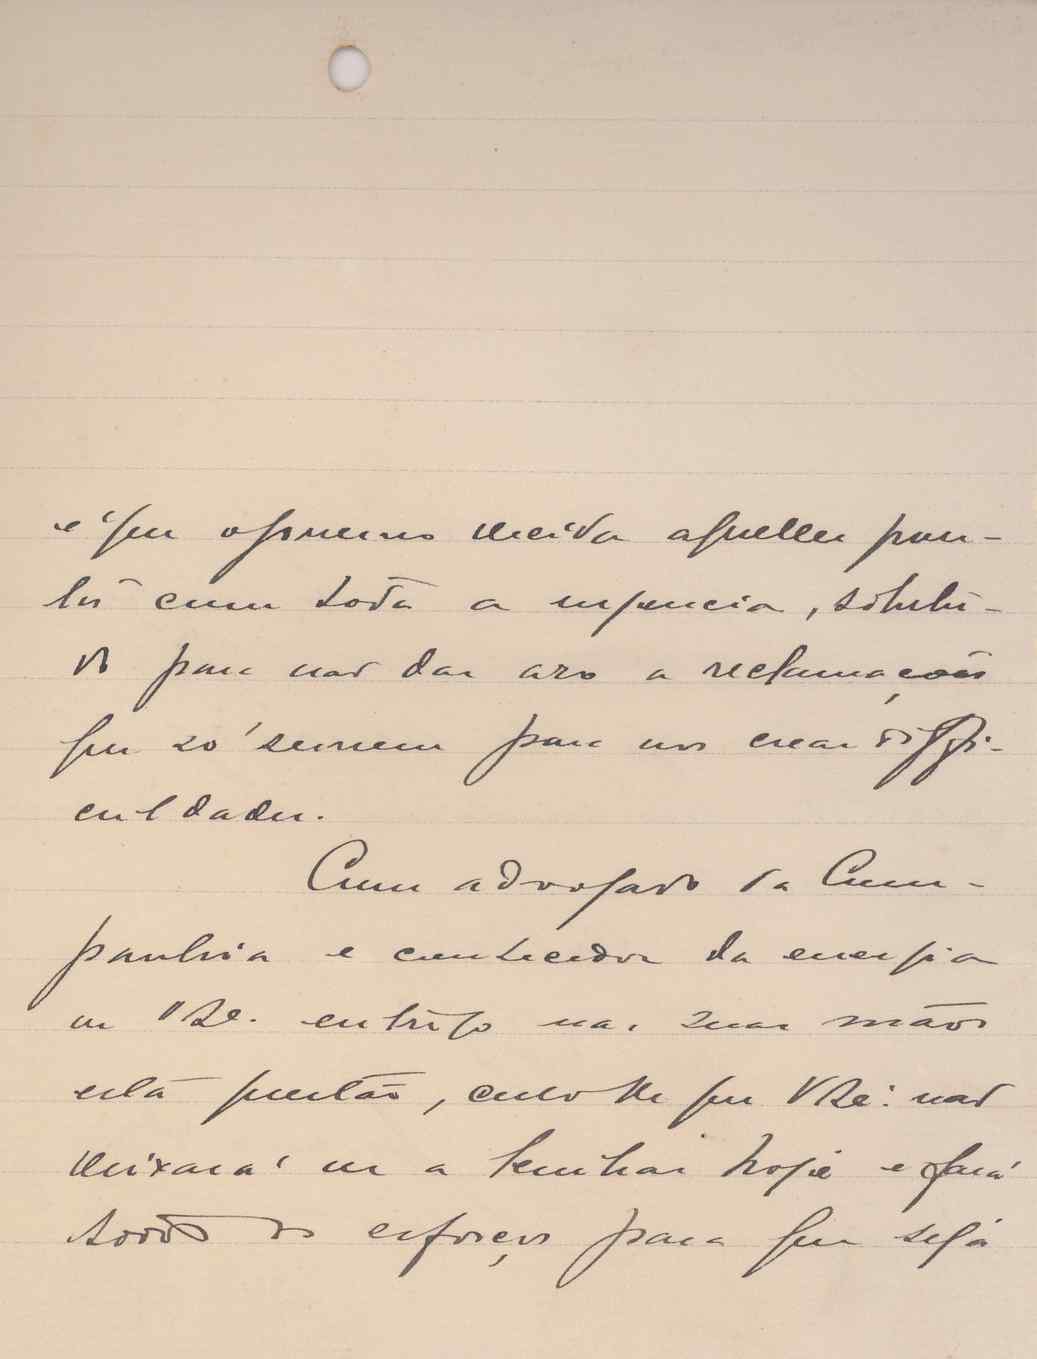 é que o governo decida aquelles pon-
tos com toda a urgencia, sobretu-
do para não dar azo a reclamações
que só servem para nos crear diffi-
culdades.
Como advogado da Com-
panhia e conhecedor da energia
de V Sa. entrego nas suas mãos
esta questão, certo de que V Sa. não
deixará de a tomar hoje e fará
todos os esforços para que seja